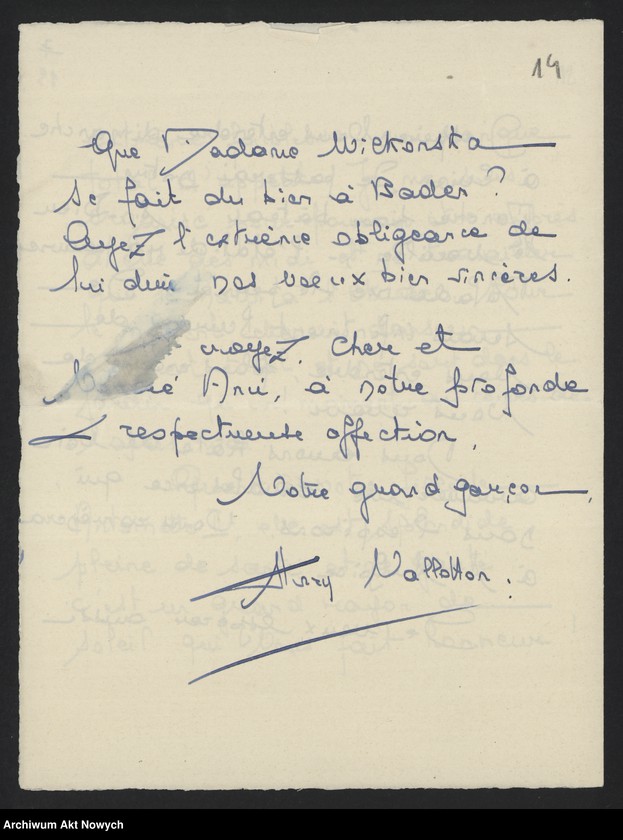 14
Que Madame Wickorska
se fait du bien à Baden ?
Ayez l'extrême obligeance de
lui dire nos vœux bien sincères.
croyez, Cher et
Ami, à notre profonde
& respectueuse affection,
Votre grand garçon,
Henry Vallotton.
Archiwum Akt Nowych